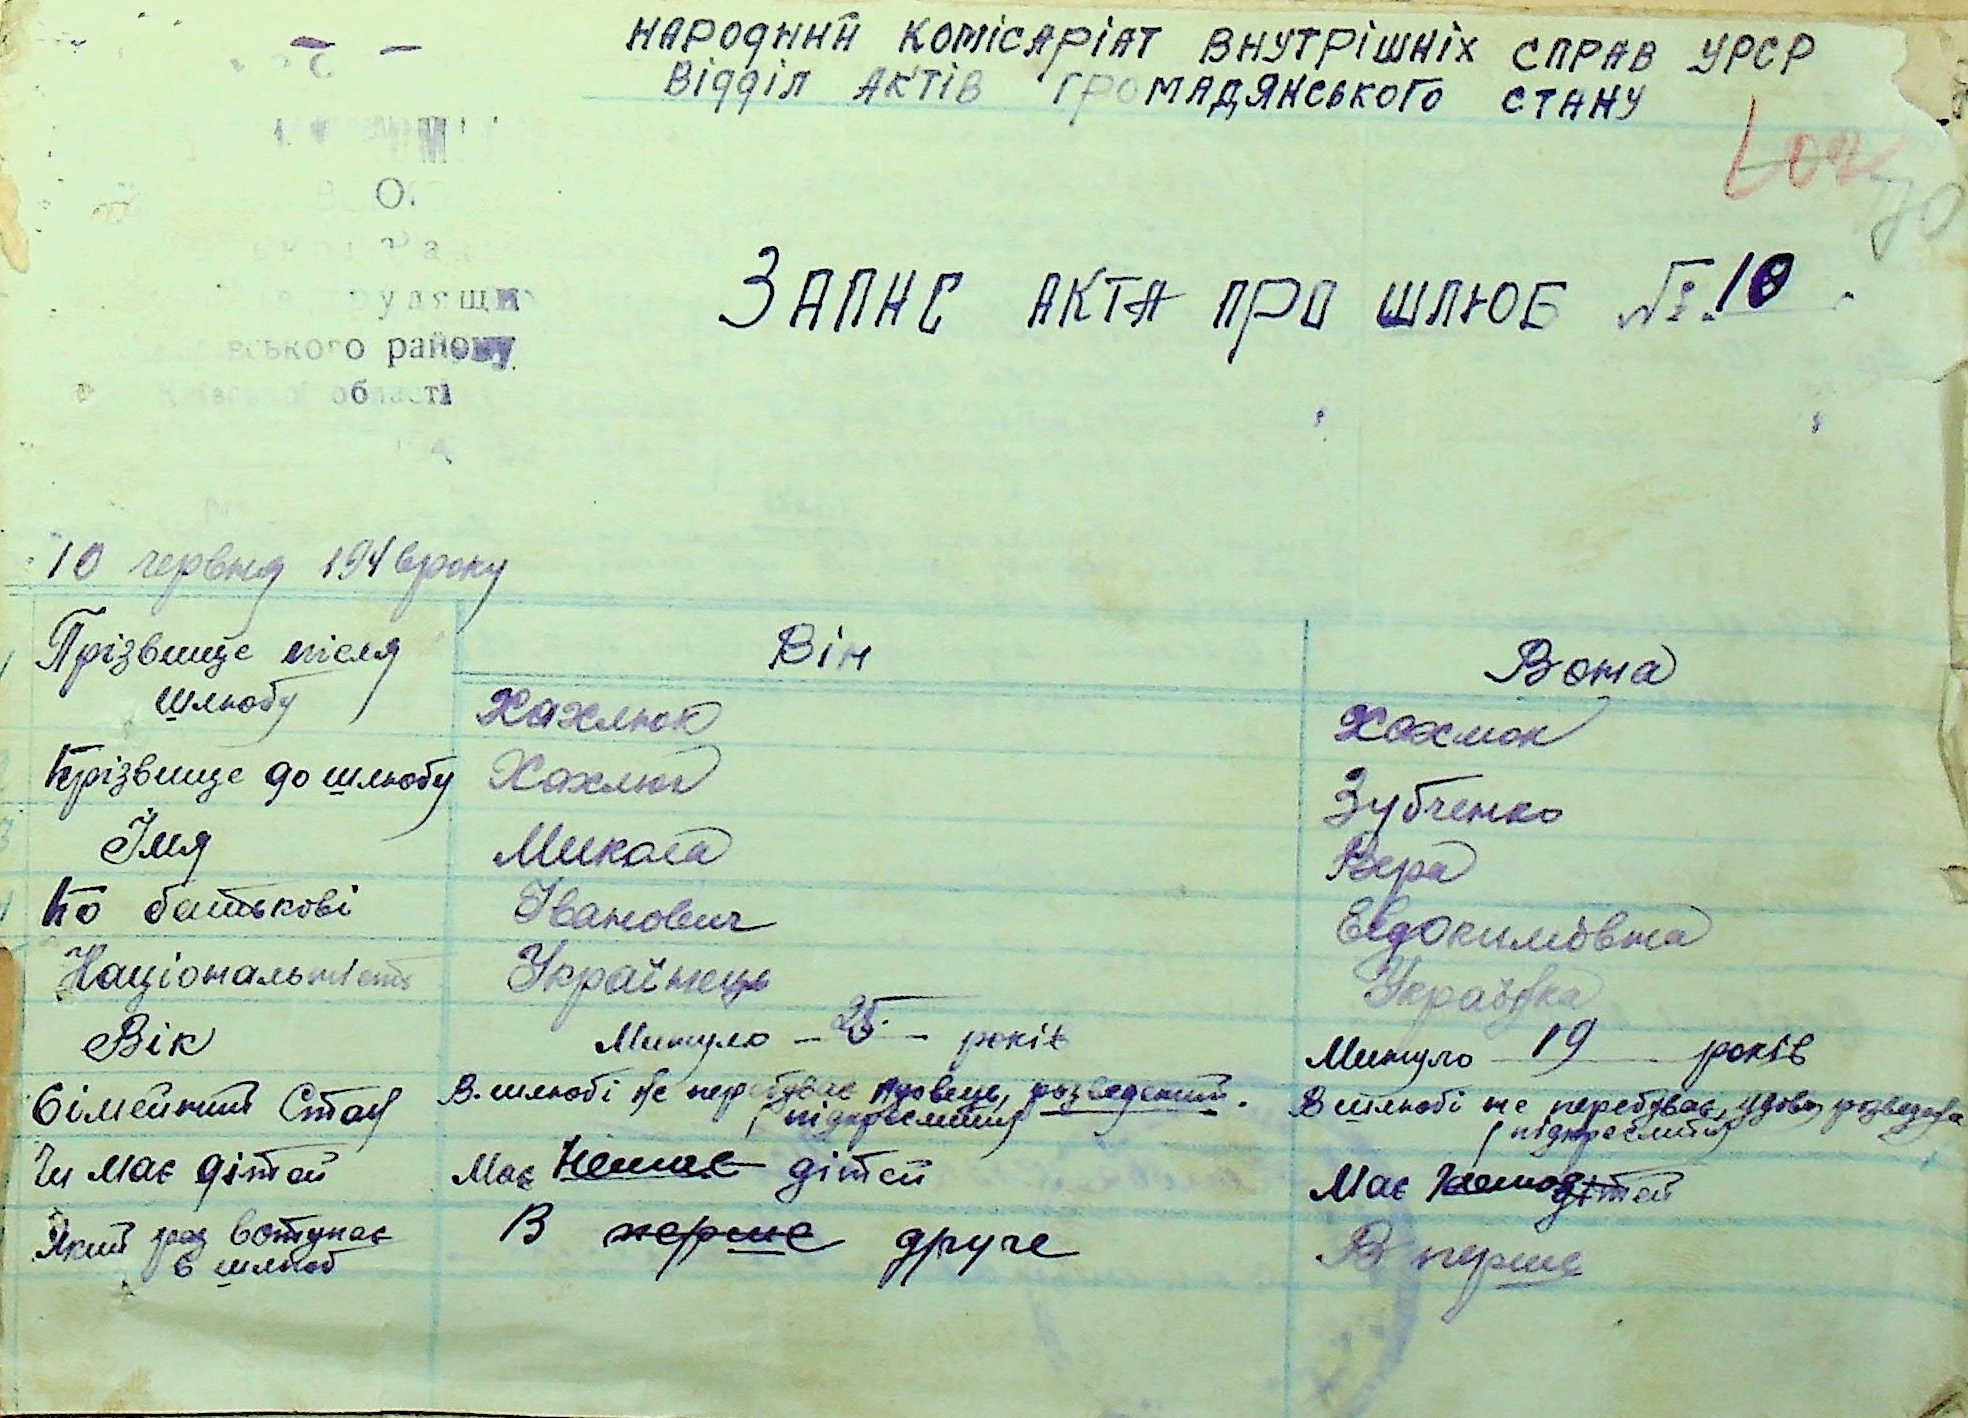 НАРОДНИЙ КОМІСАРІАТ ВНУТРІШНІХ СПРАВ УРСР
ВІДДІЛ АКТІВ ГРОМАДЯНСЬКОГО СТАНУ
району
області
ЗАПИС АКТА ПРО ШЛЮБ № 10
10 червня 194 року
Прізвище після шлюбу
Він
Вона
Хахлюк
Хахлюк
Прізвище до шлюбу Хахлюк Зубченко
Імя Микола Вера
По батькові Іванович Евдокимовна
Національність Українець Українка
Вік Минуло 25 років Минуло 19 років
Сімейний Стан В шлюбі не перебуває, вдовець, розведений. В шлюбі не перебуває, удова, розведена
підкреслити підкреслити
Чи має дітей Має Немає дітей Має Немає дітей
Який раз вступає В перше друге В перше
в шлюб